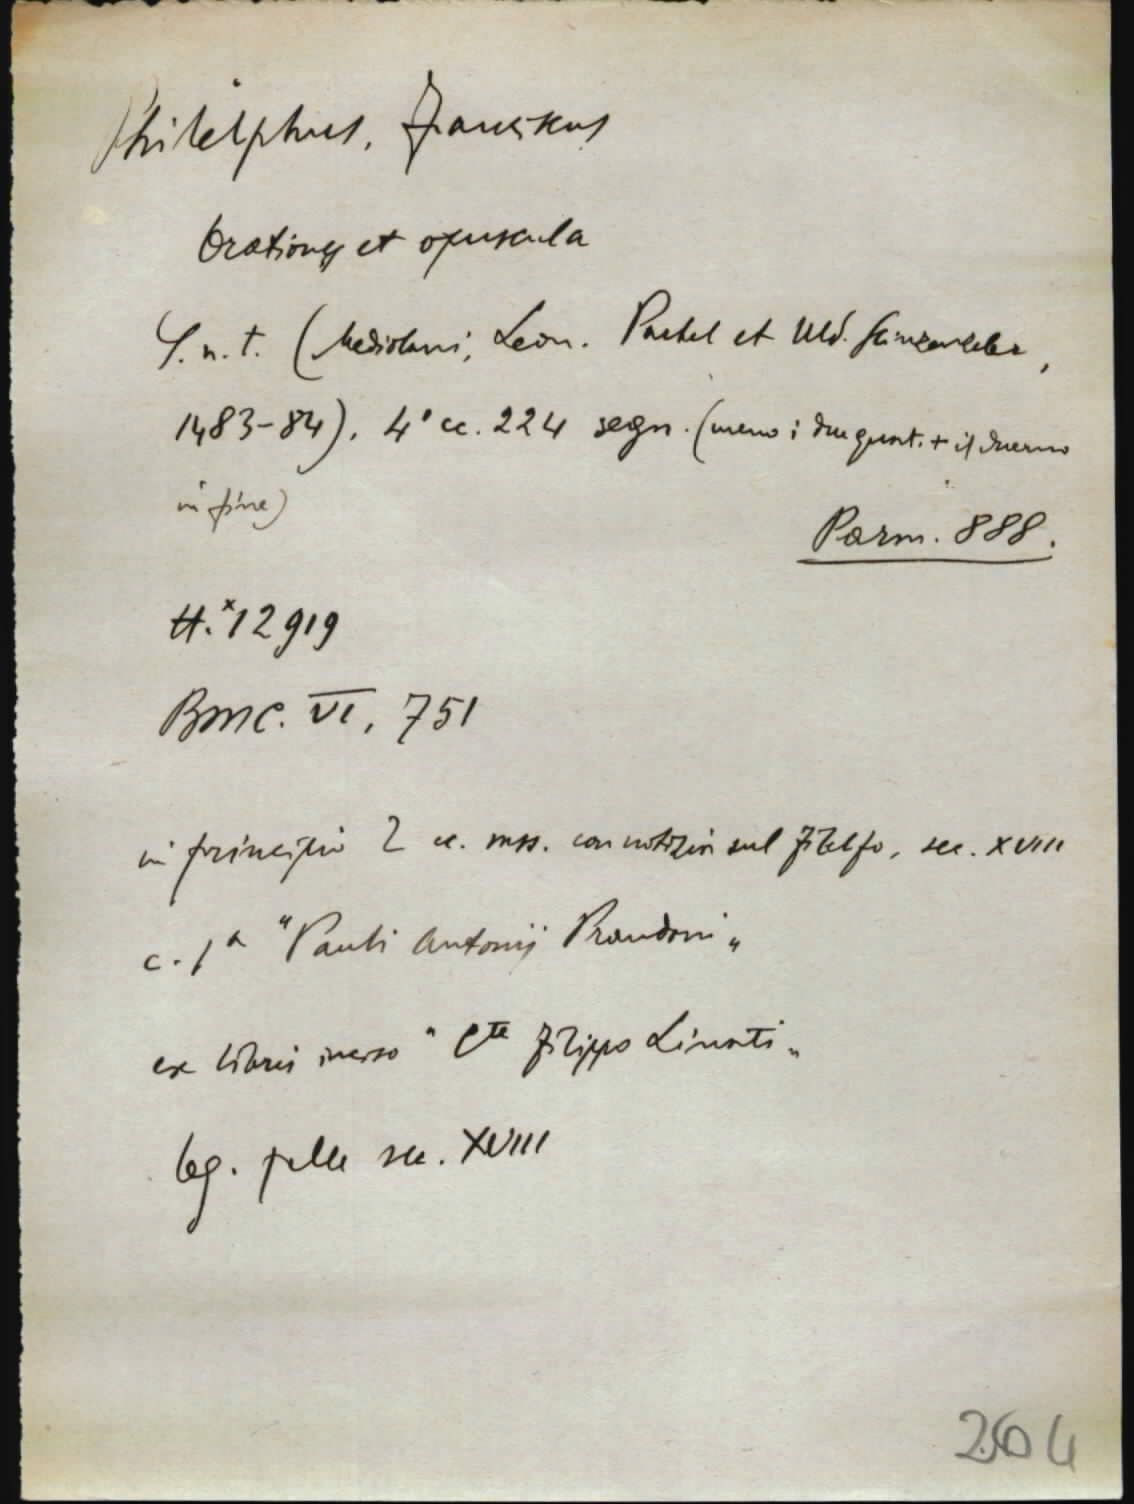 Philelphus, Franciscus
Orationes et opuscula
S. n. t. (Mediolani, Leon. Pachel et Uld. Scinzenzeler,
1483-84). 4° cc. 224 segn. (meno i due quat. + il duerno
in fine)
Parm. 888.
H.x12919
BMC. VI, 751
in principio 2 cc. mss. con notizie sul Filelfo, sec. XVIII
c. 1a "Pauli Antonij Prandoni"
ex libris inciso "Cte Filippo Linati"
leg. pelle sec. XVIII
264